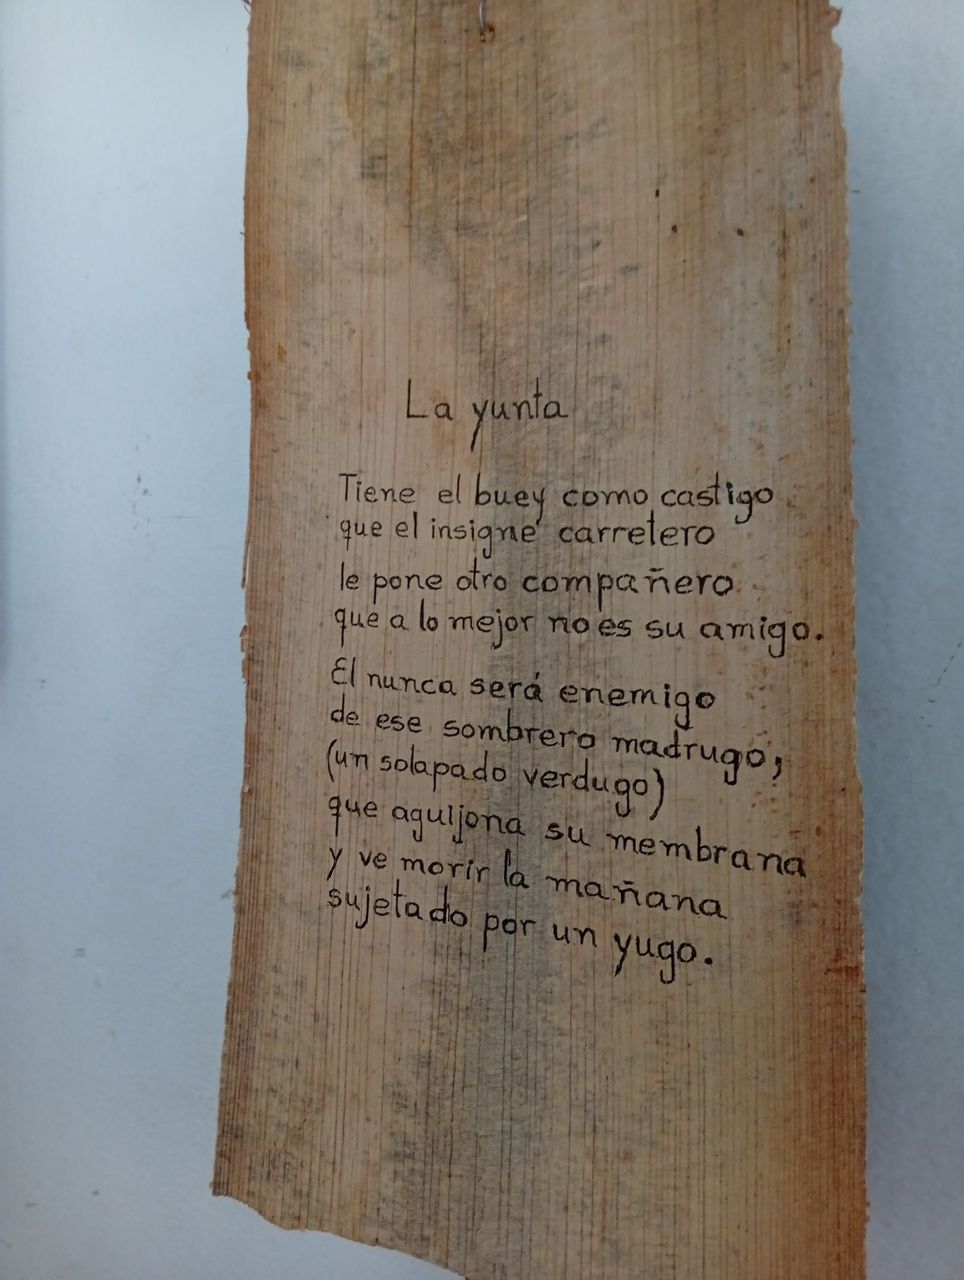 La yunta
Tiene el buey como castigo
que el insigne carretero
le pone otro compañero
que a lo mejor no es su amigo.
El nunca será enemigo
de ese sombrero madrugo,
(un solapado verdugo)
que aguijona su membrana
y ve morir la mañana
sujetado por un yugo.